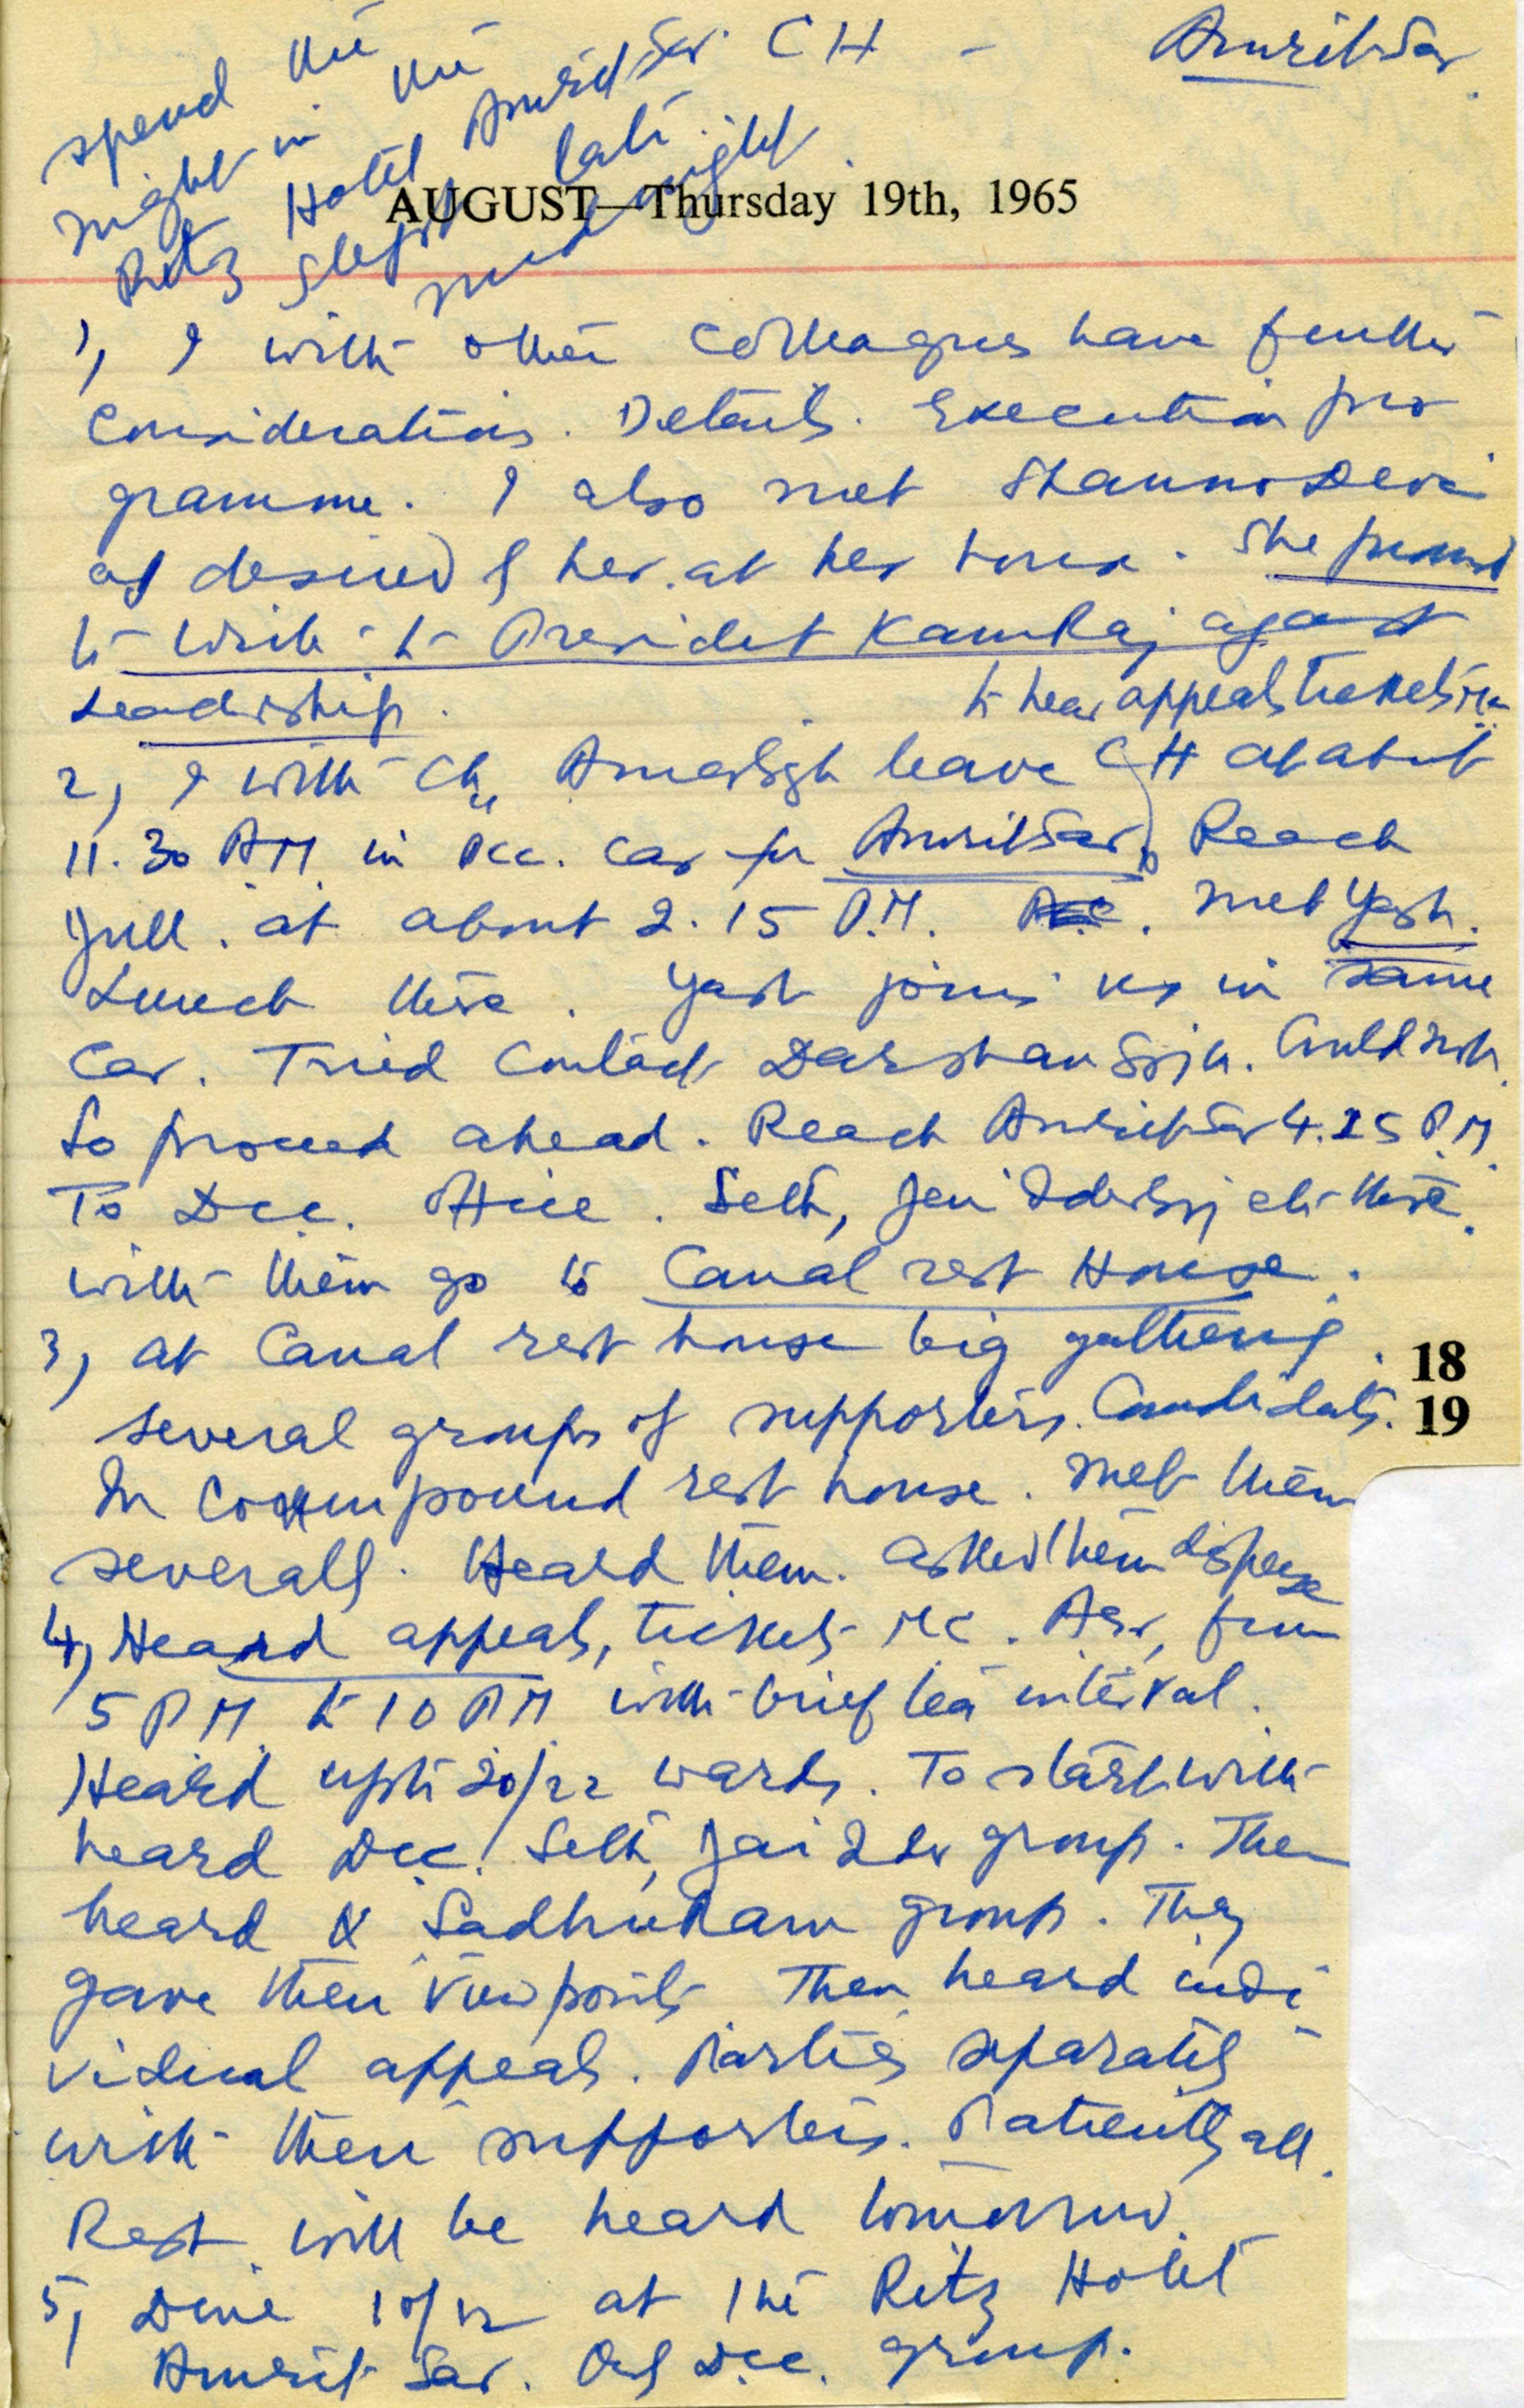 CH - Amritsar
spend the
night in the
Ritz Hotel Amritsar
slept late
mid night.
AUGUST—Thursday 19th, 1965
1, I with other Colleagues have further
Considerations. Details. Execution pro
gramme. I also met Shanno Devi
as desired by her at her house. She promised
to write to President KamRaj against
Leadership.
to hear appeals tickets MC
2, I with Ch. Amar Sigh leave CH at about
11.30 AM in Pcc. Car for Amritsar, Reach
Jull. at about 2.15 P.M. met Yash.
Lunch there. Yash joins us in same
Car. Tried Contact Darshan Singh. Could not.
So proceed ahead. Reach Amritsar 4.25 P.M.
To Dcc. Office. Seth, Jai etc there.
with them go to Canal rest House.
3, at Canal rest house big gathering.
18
several groups of supporters. Candidates.
19
In Compound rest house. met them
severally. Heard them. asked them disperse
4, Heard appeals, tickets MC. Asr, from
5 PM to 10 PM with brief tea interval.
Heard upto 20/22 wards. To start with
heard Dcc. Seth, Jai group. Then
heard SadhuRam group. They
gave their view points Then heard indi
vidual appeals. Parties separately
with their supporters. Patiently all.
Rest will be heard tomorrow.
5, Dine 10/12 at the Ritz Hotel
Amrit Sar. Dcc. group.